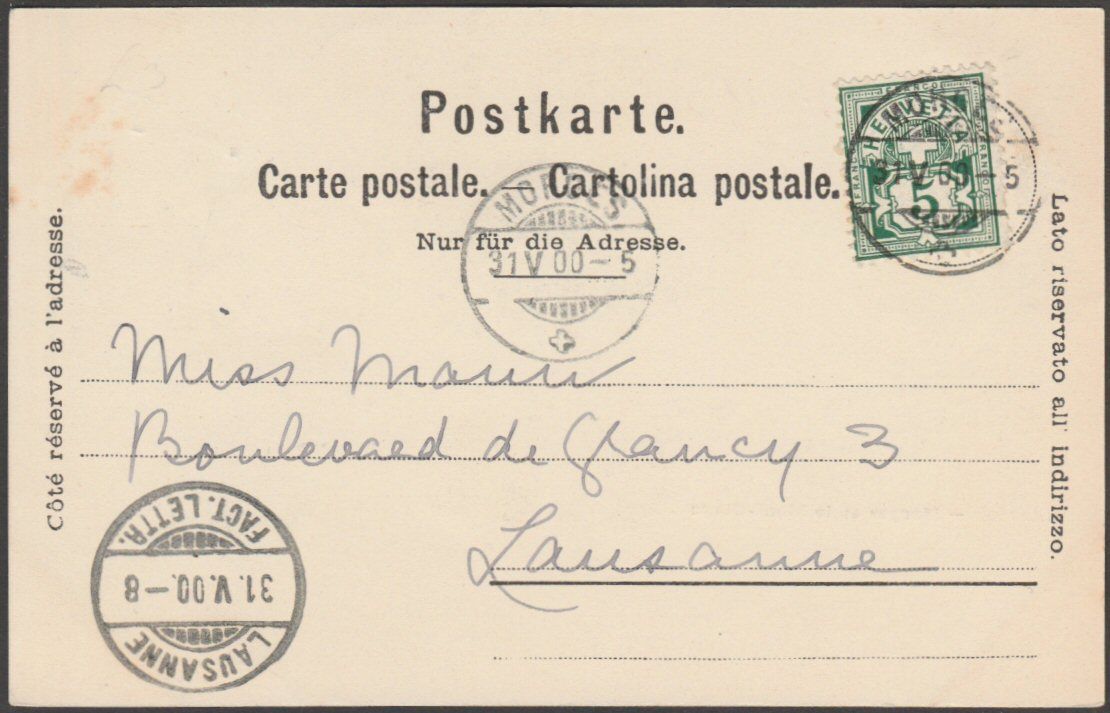 Postkarte.
Carte postale. — Cartolina postale.
Nur für die Adresse.
Côté réservé à l'adresse.
Lato riservato all' indirizzo.
FRANCO
HELVETIA
5
31 V 00 – 5
MORGES
31 V 00 – 5
Miss Mann
Boulevard de Grancy 3
Lausanne
LAUSANNE
31. V. 00. – 8
FACT. LETTR.